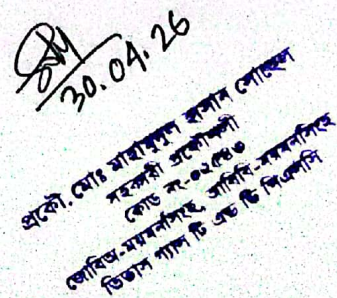 30.04.26
প্রকৌ. মোঃ মাহামুদুল হাসান সোহেল
সহকারী প্রকৌশলী
কোড নং-০২৫৪৩
জোবিঅ-ময়মনসিংহ, আবিবি-ময়মনসিংহ
তিতাস গ্যাস টি এন্ড ডি পিএলসি